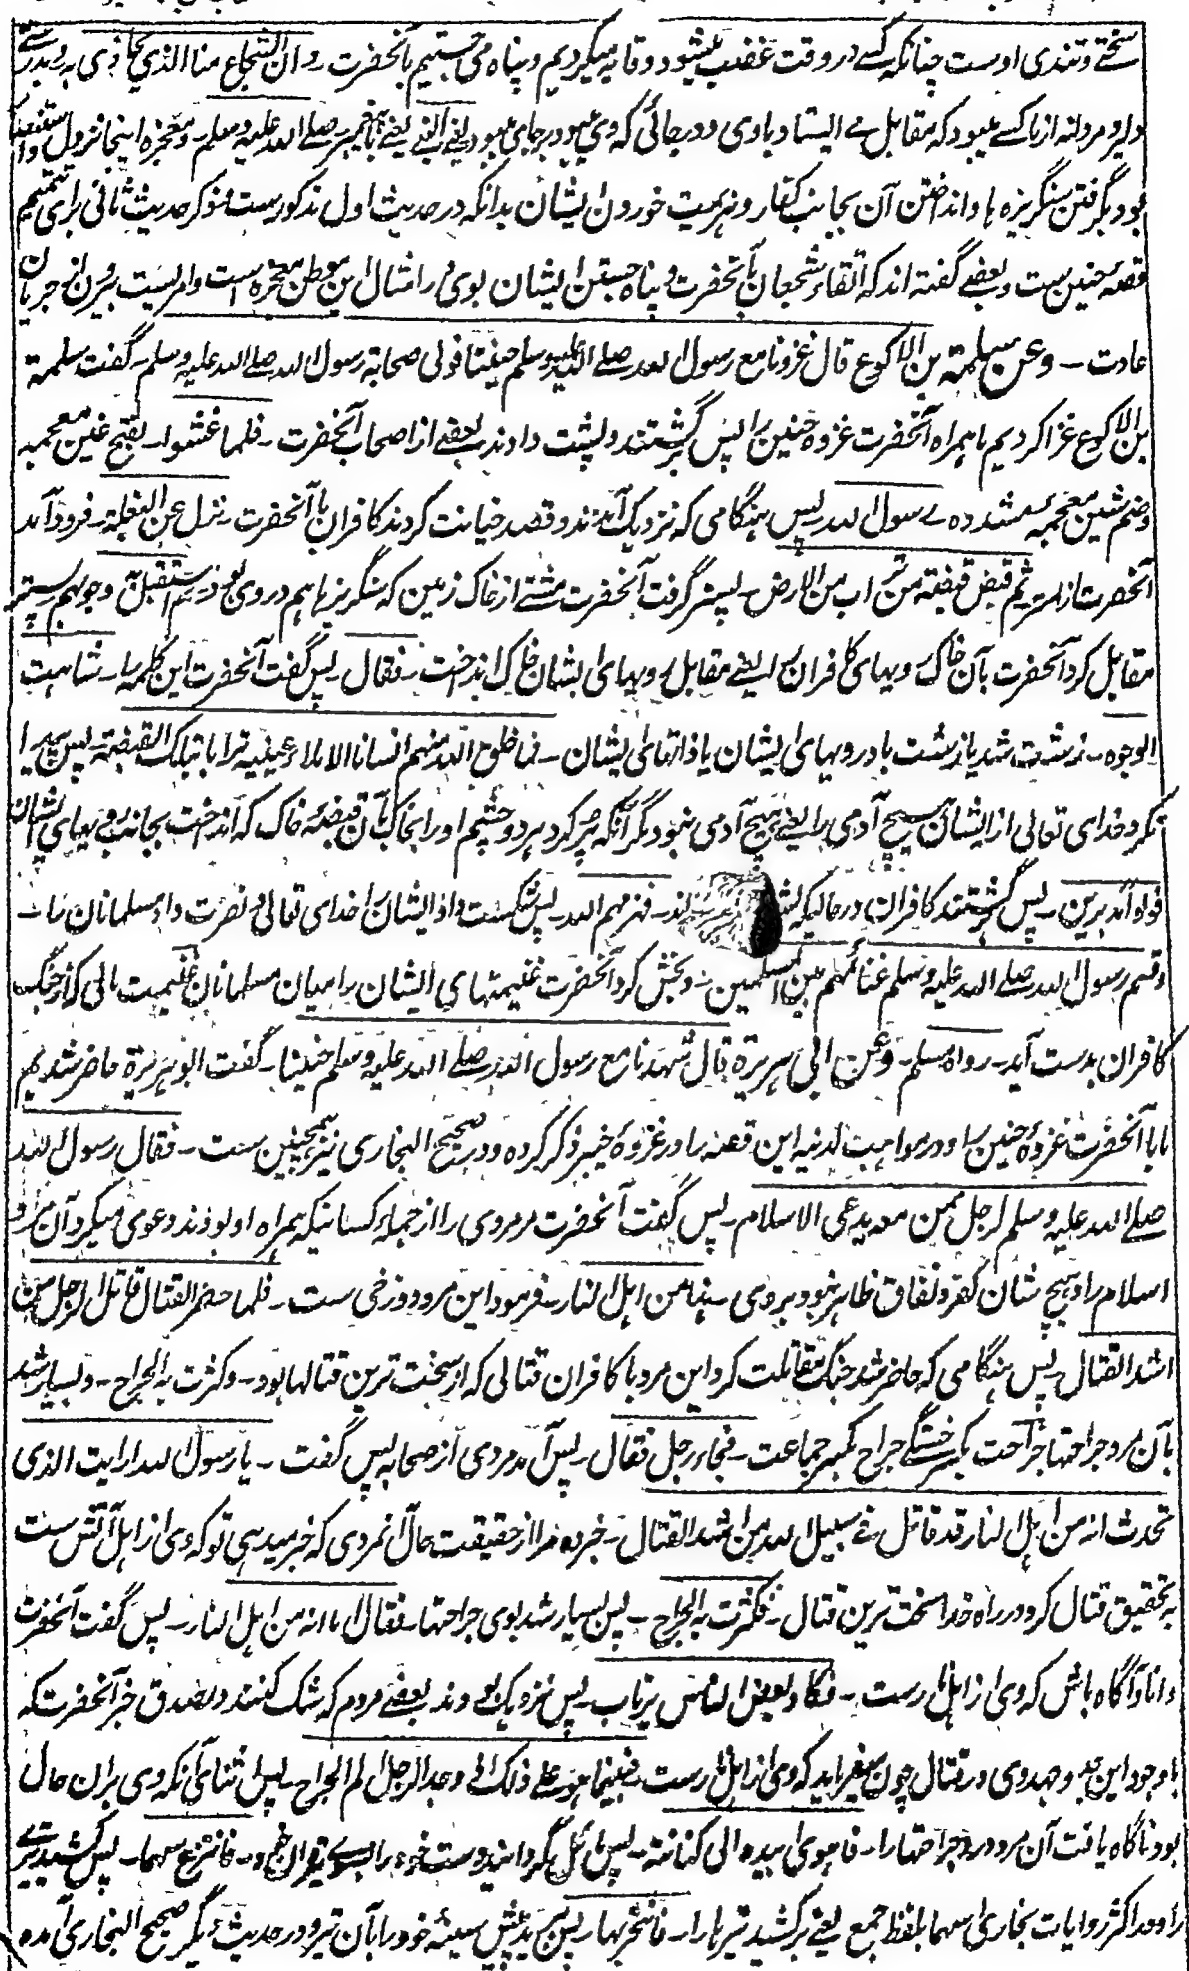 سختے و تندی اوست چنانکه کسے در وقت غضب میشود وقایه میکردیم و پناه می جستیم بآنحضرت ـ و ان الشجاع منا الذی یحاذی به بدرستے
دلیر و مردانه از ما کسے میبود که مقابل مے ایستاد باوی و در جائی که وی میبود بر جای میبود یعنے النبے یعنے پیغمبر صلے الله علیه وسلم ـ و معجزه اینجا نزول
بود بگرفتن سنگریزه ها و انداختن آن بجانب کفار و هزیمت خوردن ایشان بدانکه در حدیث اول مذکورست و ذکر حدیث ثانی برای تتمیم
قصه حنین ست و بعضے گفته اند که اتقاء شجعان بآنحضرت و پناه جستن ایشان بوی در امثال این موطن معجزه است و امریست بیرون از جریان
عادت ـ و عن سلمة بن الاکوع قال غزونا مع رسول الله صلے الله علیه وسلم حنینا فولی صحابة رسول الله صلے الله علیه وسلم ـ گفت سلمة
بن الاکوع غزا کردیم ما همراه آنحضرت غزوه حنین را پس برگشتند و پشت دادند بعضے از اصحاب آنحضرت ـ فلما غشوا ـ بفتح غین معجمه
و ضم شین معجمه مشدده ـ رسول الله ـ پس هنگامی که نزدیک آمدند و قصد خیانت کردند کافران بآنحضرت ـ نزل عن البغلة ـ فرود آمد
آنحضرت از استر ثم قبض قبضة من تراب من الارض ـ پستر گرفت آنحضرت مشتے از خاک زمین که سنگریزها هم در وی بود ـ ثم استقبل به وجوههم ـ پستر
مقابل کرد آنحضرت بآن خاک رویهای کافران را یعنے مقابل رویهای ایشان خاک انداخت ـ فقال ـ پس گفت آنحضرت این کلمه را ـ شاهت
الوجوه ـ زشت شد یا زشت باد رویهای ایشان یا ذاتهای ایشان ـ فما خلق الله منهم انسانا الا ملأ عینیه ترابا بتلک القبضة ـ پس پیدا
نکرد خدای تعالی از ایشان هیچ آدمی را یعنے هیچ آدمی نبود مگر آنکه پر کرد هر دو چشم او را بخاک بآن قبضه خاک که انداخت بجانب رویهای ایشان
فولوا مدبرین ـ پس گشتند کافران در حالیکه پشت ـ فهزمهم الله ـ پس شکست داد ایشان را خدای تعالی و نصرت داد مسلمانان را ـ
و قسم رسول الله صلے الله علیه وسلم غنائمهم بین المسلمین ـ و بخش کرد آنحضرت غنیمتهای ایشان را میان مسلمانان غنیمت مالی که از جنگ
کافران بدست آید ـ رواه مسلم ـ و عن ابی هریرة قال شهدنا مع رسول الله صلے الله علیه وسلم حنینا ـ گفت ابو هریرة حاضر شدیم
ما با آنحضرت غزوه حنین را و در مواهب لدنیه این قصه را در غزوه خیبر ذکر کرده و در صحیح البخاری نیز همچنین ست ـ فقال رسول الله
صلے الله علیه وسلم لرجل ممن معه یدعی الاسلام ـ پس گفت آنحضرت مر مردی را از جمله کسانیکه همراه او بودند و دعوی میکرد آن مرد
اسلام را و هیچ نشان کفر و نفاق ظاهر نبود بر وی ـ هذا من اهل النار ـ فرمود این مرد دوزخی ست ـ فلما حضر القتال قاتل الرجل من
اشد القتال ـ پس هنگامی که حاضر شد جنگ مقاتلت کرد این مرد با کافران قتالی که از سخت ترین قتالها بود ـ و کثرت به الجراح ـ و بسیار شد
بآن مرد جراحتها جراحت بکسر خستگے جراح بکسر جماعت ـ فجاء رجل فقال ـ پس آمد مردی از صحابه پس گفت ـ یا رسول الله ارایت الذی
تحدث انه من اهل النار قد قاتل فے سبیل الله من اشد القتال ـ خبر ده مرا از حقیقت حال آنمردی که خبر میدهی تو که وی از اهل آتش ست
به تحقیق قتال کرد در راه خدا سخت ترین قتال ـ فکثرت به الجراح ـ پس بسیار شد بوی جراحتها ـ فقال اما انه من اهل النار ـ پس گفت آنحضرت
دانا و آگاه باش که وی از اهل نارست ـ فکاد بعض الناس یرتاب ـ پس نزدیک بودند بعضے مردم که شک کنند در صدق خبر آنحضرت که
با وجود این جد و جهد وی در قتال چون میفرماید که وی از اهل نارست ـ فبینما هو علے ذلک اذ وجد الرجل الم الجراح ـ پس اثنای آنکه وی بران حال
بود ناگاه یافت آن مرد درد جراحتها را ـ فاهوی بیده الی کنانته ـ پس مائل گردانید دست خود را بسوے تیردان خود ـ فانتزع سهما ـ پس کشید تیرے
را و در اکثر روایات بخاری اسهما بلفظ جمع یعنے برکشید تیرها را ـ فانتحر بها ـ پس برید پیش سینه خود را بآن تیر و در حدیث دیگر صحیح البخاری آمده